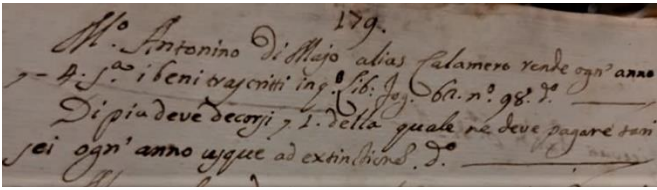 179.
M.º Antonino Di Majo alias Calamero rende ogn' anno
7 - 4. s.ª i beni trascritti in q.º lib: fog. 62. nº. 98. d.º
Di più deve decorsi 7 1. della quale ne deve pagare tarì
sei ogn' anno usque ad extinctione d.º